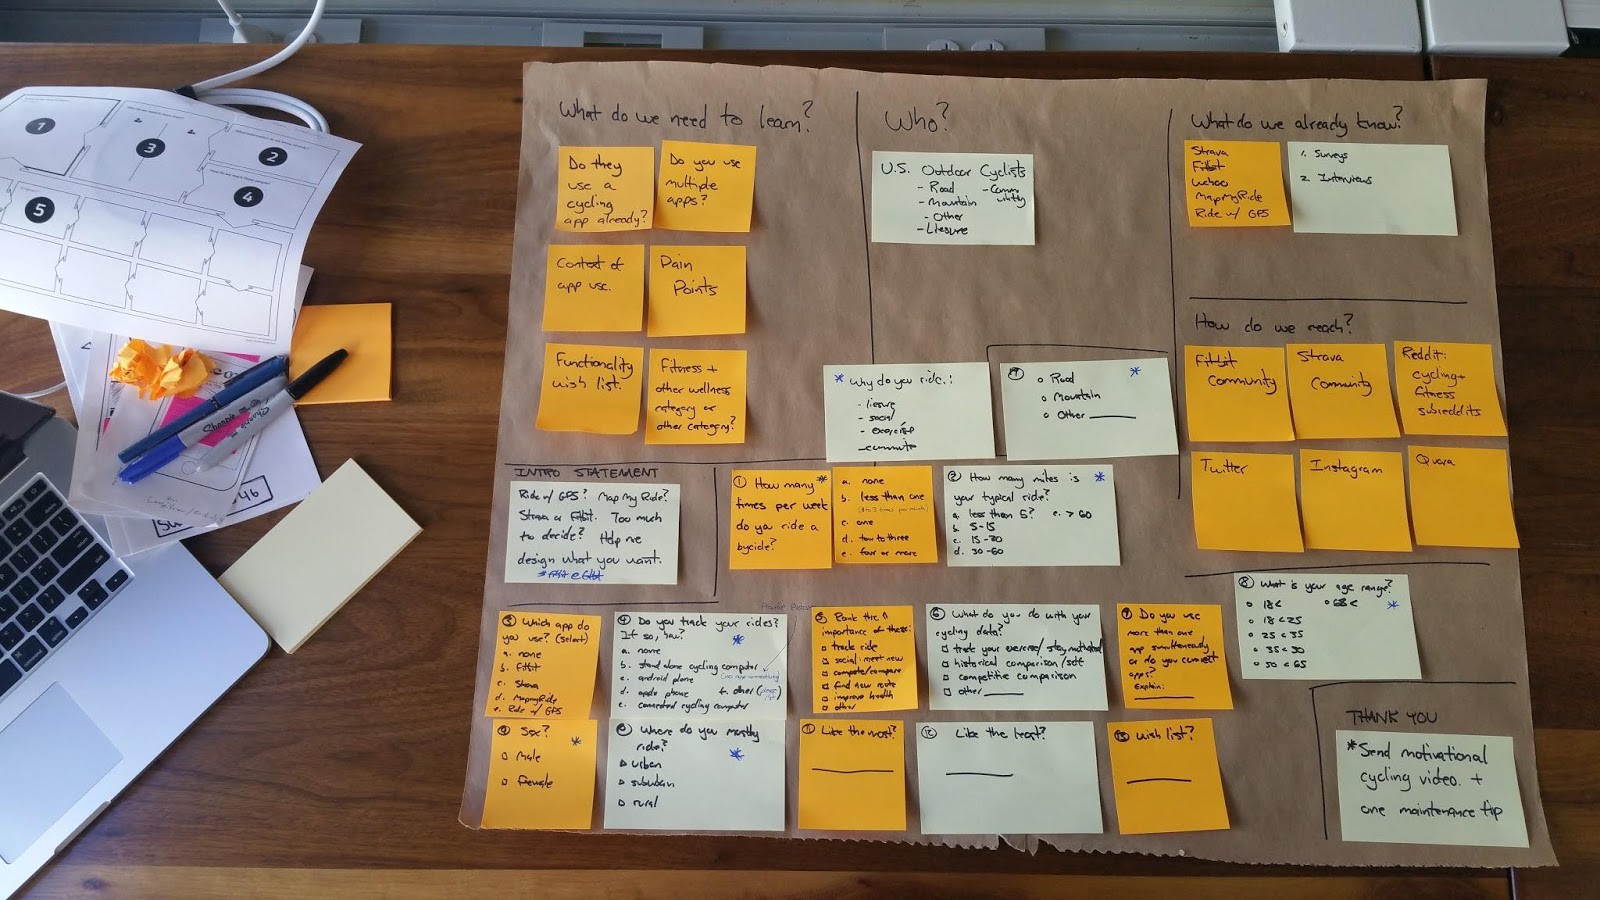 What do we need to learn?
Do they
use a
cycling
app already?
Do you use
multiple
apps?
Context of
app use.
Pain
Points
Functionality
wish list.
Fitness +
other wellness
category or
other category?
Who?
U.S. Outdoor Cyclists
- Road
- Mountain
- Other
- Liesure
What do we already know?
Strava
Fitbit
Wahoo
MapMyRide
Ride w/ GPS
1. Surveys
2. Interviews
How do we reach?
Fitbit
Community
Strava
Community
Reddit:
cycling +
fitness
subreddits
Twitter
Instagram
Quora
* Why do you ride.:
- liesure
- social
- exercise
- commute
o Road *
o Mountain
o Other
INTRO STATEMENT
Ride w/ GPS? Map My Ride?
Strava or Fitbit. Too much
to decide? Help me
design what you want.
1 How many *
times per week
do you ride a
bycicle?
a. none
b. less than one
c. one
d. tow to three
e. four or more
2 How many miles is *
your typical ride?
a. less than 5? e. > 60
b. 5-15
c. 15-30
d. 30-60
3 Which app do
you use? (select)
a. none
b. Fitbit
c. Strava
d. MapMyRide
e. Ride w/ GPS
4 Do you track your rides?
If so, how? *
a. none
b. stand alone cycling computer
c. android phone
d. apple phone f. other
e. connected cycling computer
5 Rank the
importance of these:
track ride
social: meet new
compete/compare
find new route
improve health
other
6 What do you do with your
cycling data?
track your exercise/stay motivated
historical comparison/self
competitive comparison
other
7 Do you use
more than one
app simultaneously
or do you connect
apps?
Explain:
8 What is your age range?
o 18<
o 18<25
o 25<35
o 35<50
o 50<65
*
9 Sex? *
male
female
Where do you mostly
ride? *
urban
suburban
rural
11 Like the most?
12 Like the least?
13 Wish list?
THANK YOU
* Send motivational
cycling video. +
one maintenance tip
1
2
3
4
5
Sharpie